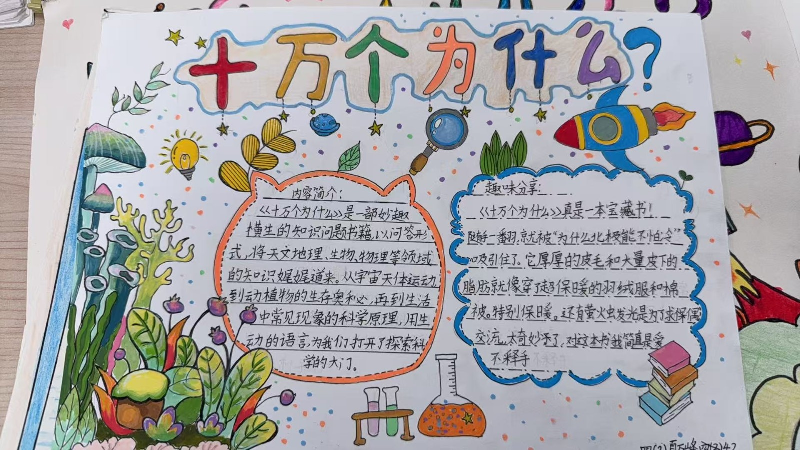 十万个为什么?
内容简介:
《十万个为什么》是一部妙趣
横生的知识问题书籍,以问答形
式,将天文地理、生物、物理等领域
的知识娓娓道来。从宇宙天体运动
到动植物的生存奥秘,再到生活
中常见现象的科学原理,用生
动的语言,为我们打开了探索科
学的大门。
趣味分享:
《十万个为什么》真是一本宝藏书!
随手一翻,就被“为什么北极熊不怕冷”
吸引住了。它厚厚的皮毛和大量皮下的
脂肪就像穿了超保暖的羽绒服和棉
被,特别保暖。还有萤火虫发光是为了求偶
交流,太奇妙了,对这本书我简直是爱
不释手
四(2)